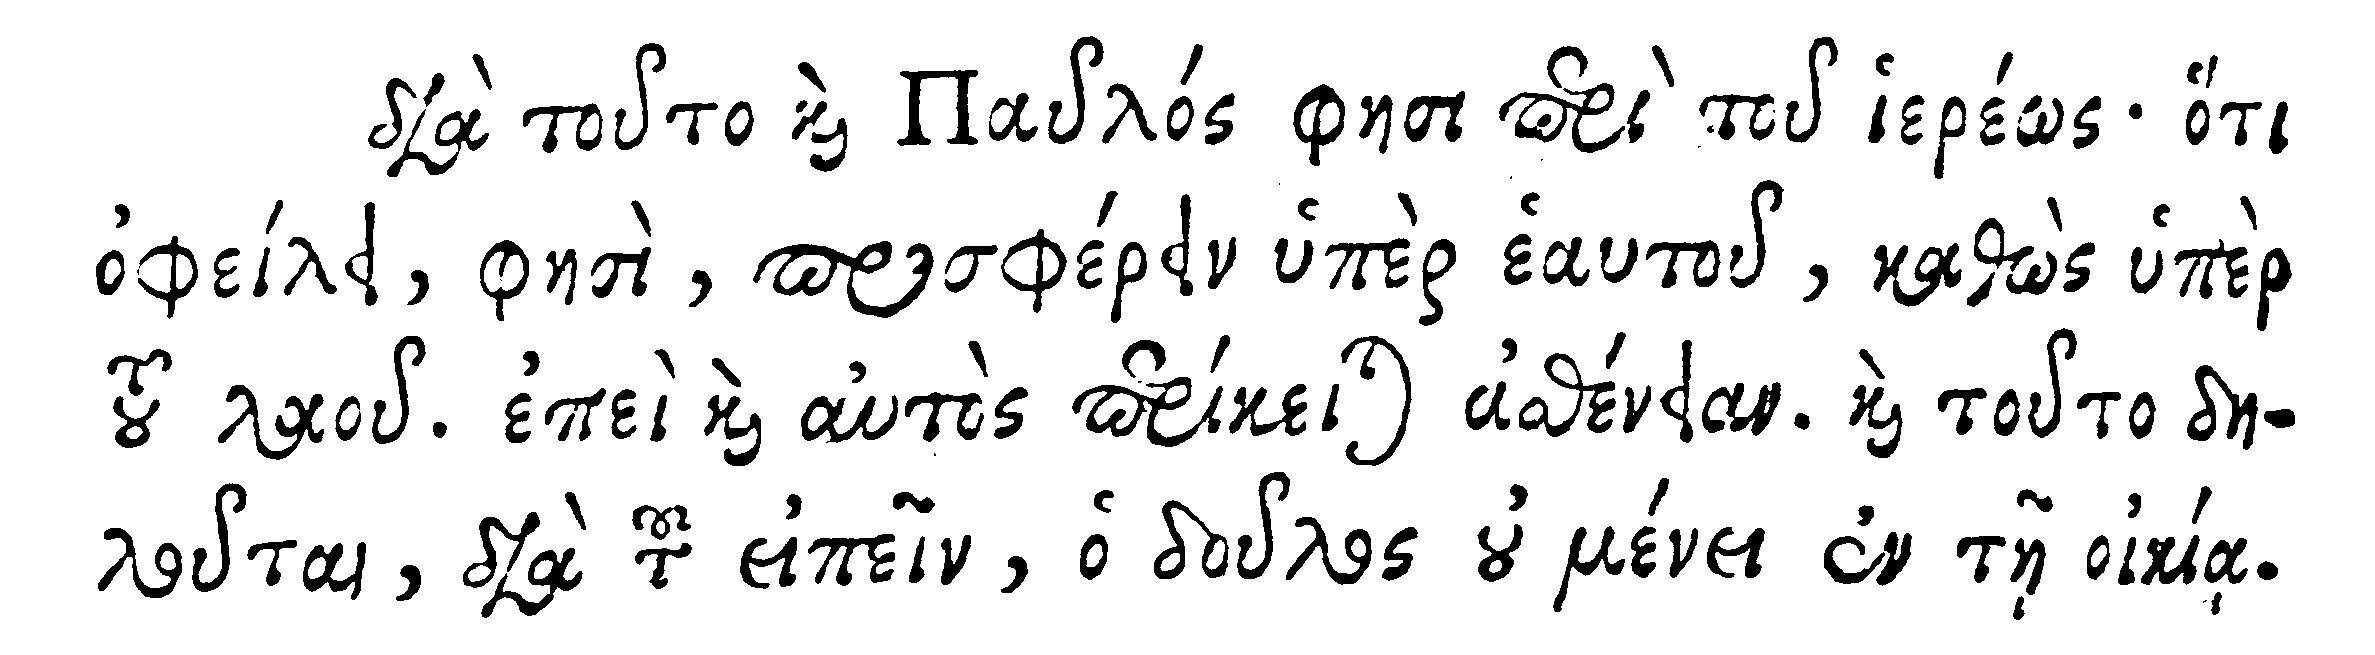 διὰ τοῦτο καὶ Παῦλός φησι περὶ τοῦ ἱερέως· ὅτι
ὀφείλει, φησὶ, προσφέρειν ὑπὲρ ἑαυτοῦ, καθὼς ὑπὲρ
τοῦ λαοῦ. ἐπεὶ καὶ αὐτὸς περίκειται ἀσθένειαν. καὶ τοῦτο δη-
λοῦται, διὰ τοῦ εἰπεῖν, ὁ δοῦλος οὐ μένει ἐν τῇ οἰκίᾳ.